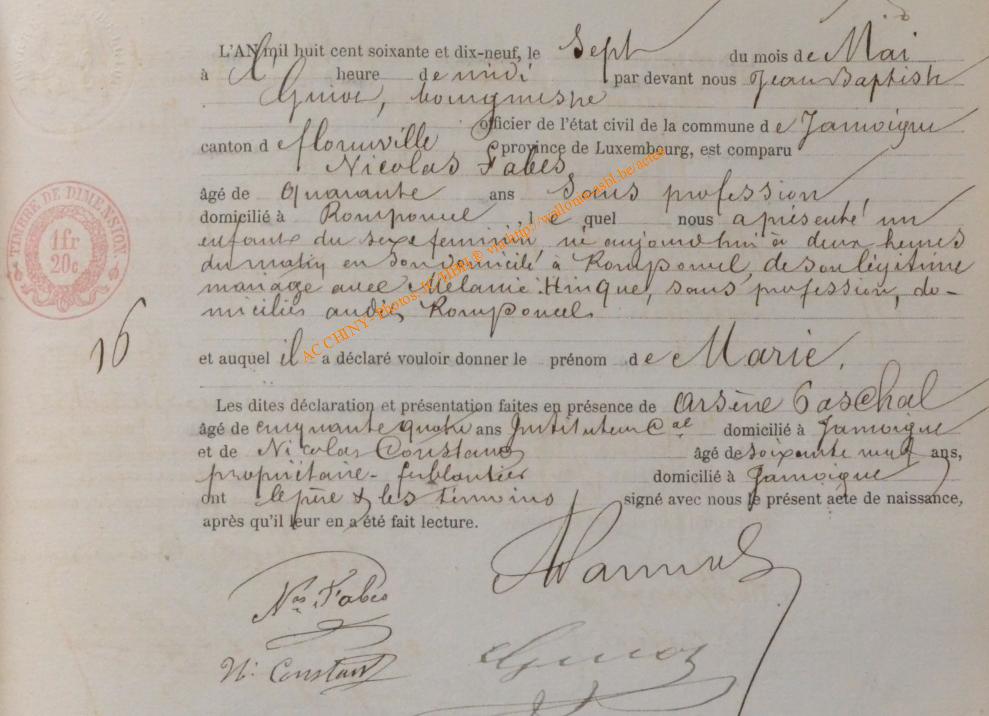 L'AN mil huit cent soixante et dix-neuf, le Sept du mois de Mai
à heure de midi par devant nous Jean Baptiste
bourgmestre
officier de l'état civil de la commune de Jamoigne
canton de florenville province de Luxembourg, est comparu
Nicolas Fabes
âgé de quarante ans Sans profession
domicilié à Romponcel, le quel nous a présenté un
enfant du sexe feminin né aujourd'hui à deux heures
du matin en son domicile à Romponcel, de son légitime
mariage avec Mélanie sans profession, do-
miciliés audit Romponcel
16
et auquel il a déclaré vouloir donner le prénom de Marie.
Les dites déclaration et présentation faites en présence de Arsène Paschal
âgé de cinquante quatre ans Instituteur Cal domicilié à Jamoigne
et de Nicolas Constant âgé de soixante neuf ans,
propriétaire - ferblantier domicilié à Jamoigne
ont le père & les témoins signé avec nous le présent acte de naissance,
après qu'il leur en a été fait lecture.
TIMBRE DE DIMENSION
1fr
20c
AC CHINY-Photos via http://wallonica asbl.be/actes
Nas Fabes
N. Constant